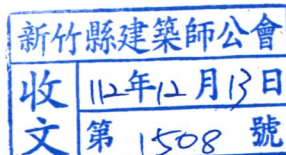 新竹縣建築師公會
收文
112年12月13日
第 1508 號